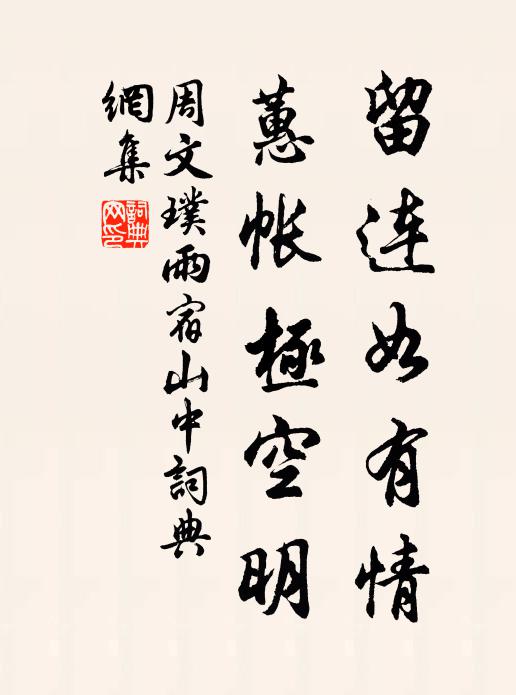 留連如有情
蕙帳極空明
周文璞雨宿山中詞典
網集
詞典
网印